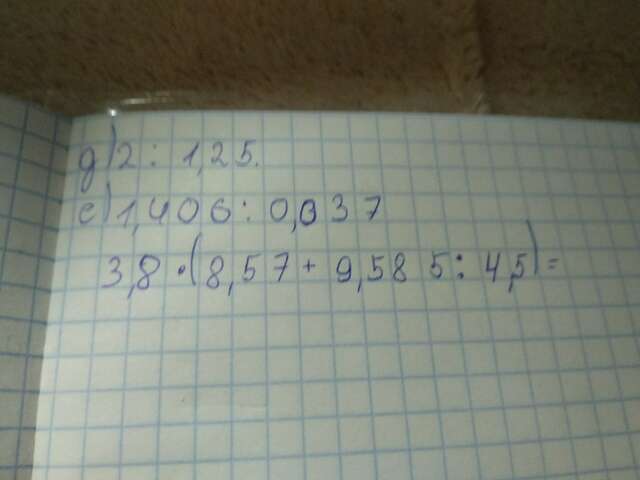 д) 2 : 1,25.
е) 1,406 : 0,037
3,8 · (8,57 + 9,585 : 4,5) =